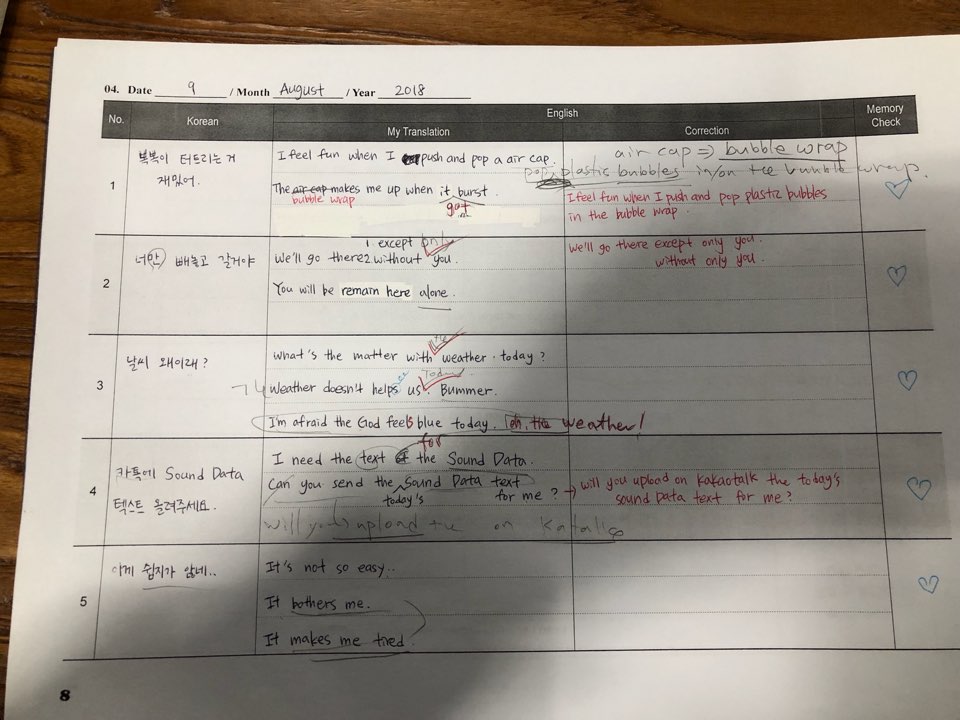 04. Date 9 / Month August / Year 2018
No. Korean English Memory Check
My Translation Correction
1
뽁뽁이 터뜨리는 거
재밌어.
I feel fun when I push and pop a air cap.
The air cap makes me up when it burst.
bubble wrap
got
air cap ⇒ bubble wrap
pop plastic bubbles in/on the bubble wrap.
I feel fun when I push and pop plastic bubbles
in the bubble wrap.
2
너만 빼놓고 갈거야
except only
We'll go there without you.
You will be remain here alone.
We'll go there except only you.
without only you.
3
날씨 왜이래?
the
What's the matter with weather today?
today
Weather doesn't helps us. Bummer.
I'm afraid the God feels blue today. eh, the weather!
4
카톡에 Sound Data
텍스트 올려주세요.
for
I need the text of the Sound Data.
Can you send the Sound Data text
today's for me?
will you upload the on Katalk
→ will you upload on kakaotalk the today's
sound Data text for me?
5
이게 쉽지가 않네..
It's not so easy..
It bothers me.
It makes me tired.
8